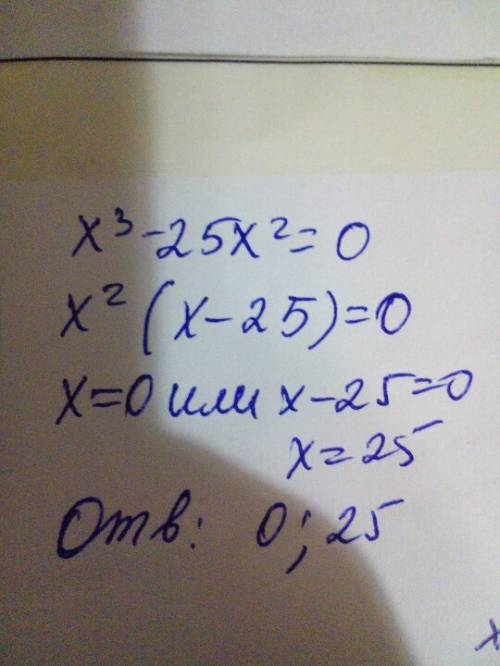 x³-25x²=0
x²(x-25)=0
x=0 или x-25=0
x=25
Отв: 0; 25
x